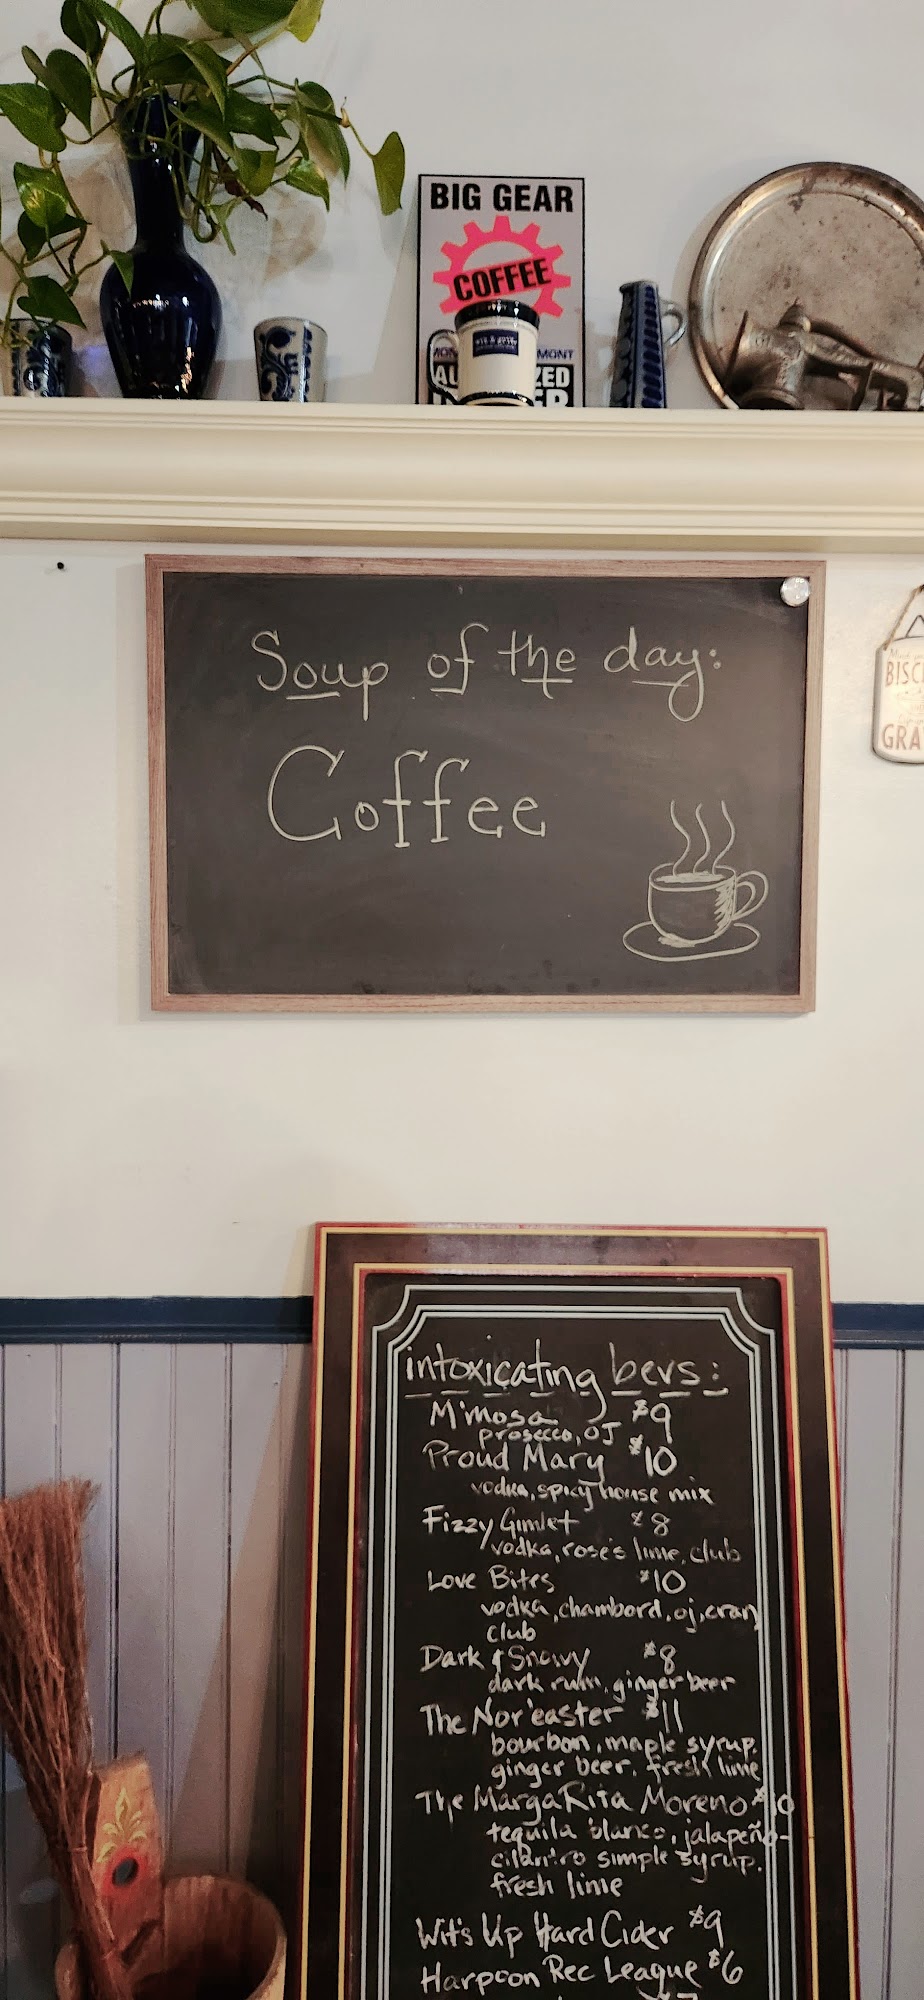 BIG GEAR
COFFEE
MONT
Soup of the day:
Coffee
intoxicating bevs:
Mimosa $9
prosecco, OJ
Proud Mary $10
vodka, spicy house mix
Fizzy Gimlet $8
vodka, rose's lime, club
Love Bites $10
vodka, chambord, oj, cran
club
Dark & Snowy $8
dark rum, ginger beer
The Nor'easter $11
bourbon, maple syrup,
ginger beer, fresh lime
The MargaRita Moreno $10
tequila blanco, jalapeño-
cilantro simple syrup,
fresh lime
Wit's Up Hard Cider $9
Harpoon Rec League $6